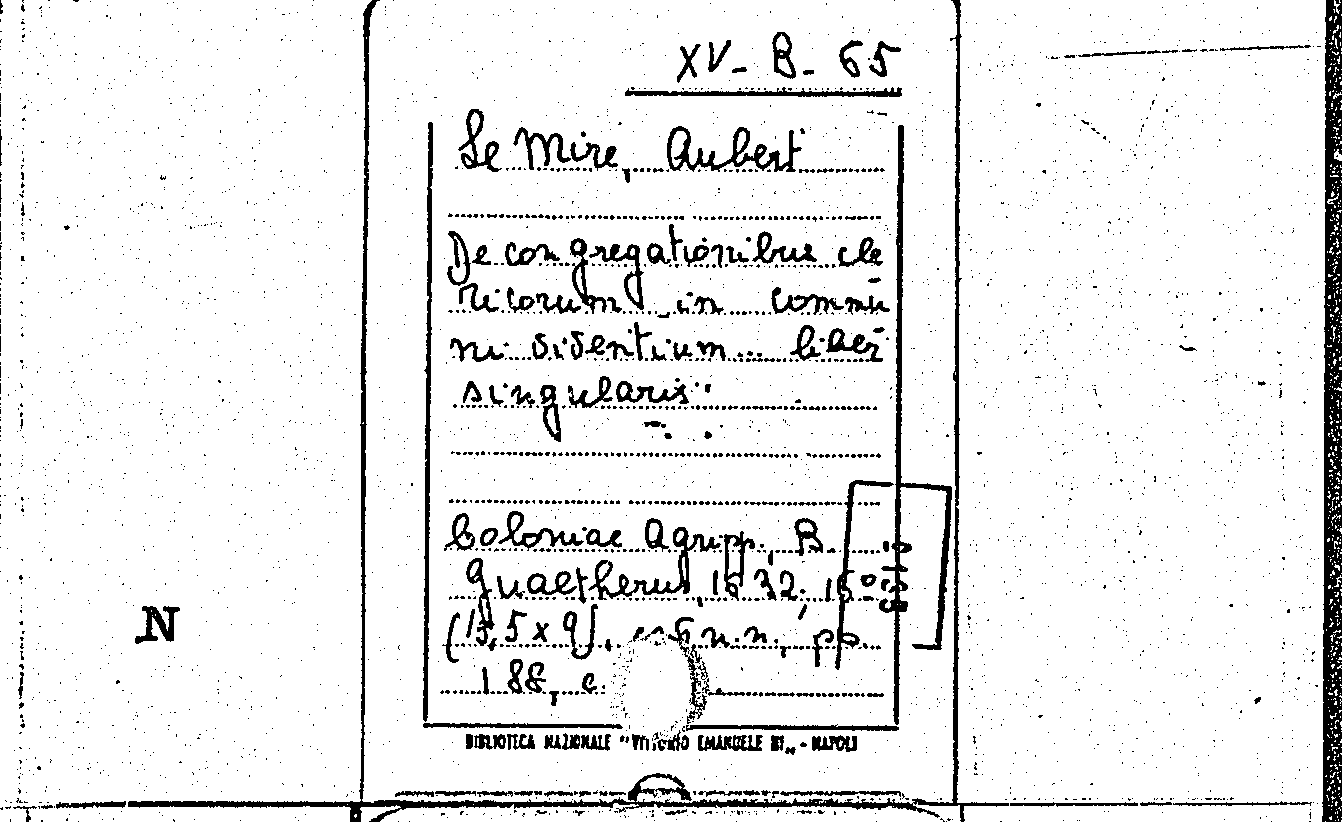 XV- B- 65
Le Mire, Aubert
De congregationibus cle
ricorum in commu
ni viventium... liber
singularis
Coloniae Agripp., B.
Gualtherus, 1632; 16º
(13,5 x 9), cc 6 n.n., pp.
188, c.
N
BIBLIOTECA NAZIONALE "VITTORIO EMANUELE III" - NAPOLI